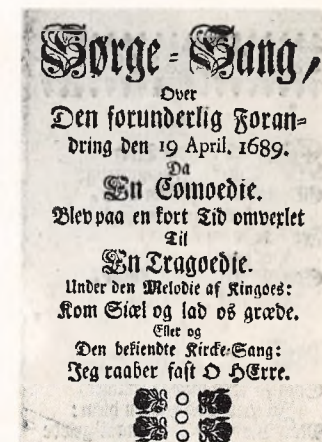 Sørge-Sang,
Over
Den forunderlig Foran-
dring den 19 April. 1689.
Da
En Comoedie.
Blev paa en kort Tid omvexlet
Til
En Tragoedie.
Under den Melodie af Kingoes:
Kom Siæl og lad os græde.
Eller og
Den bekiendte Kircke-Sang:
Jeg raaber fast O HErre.